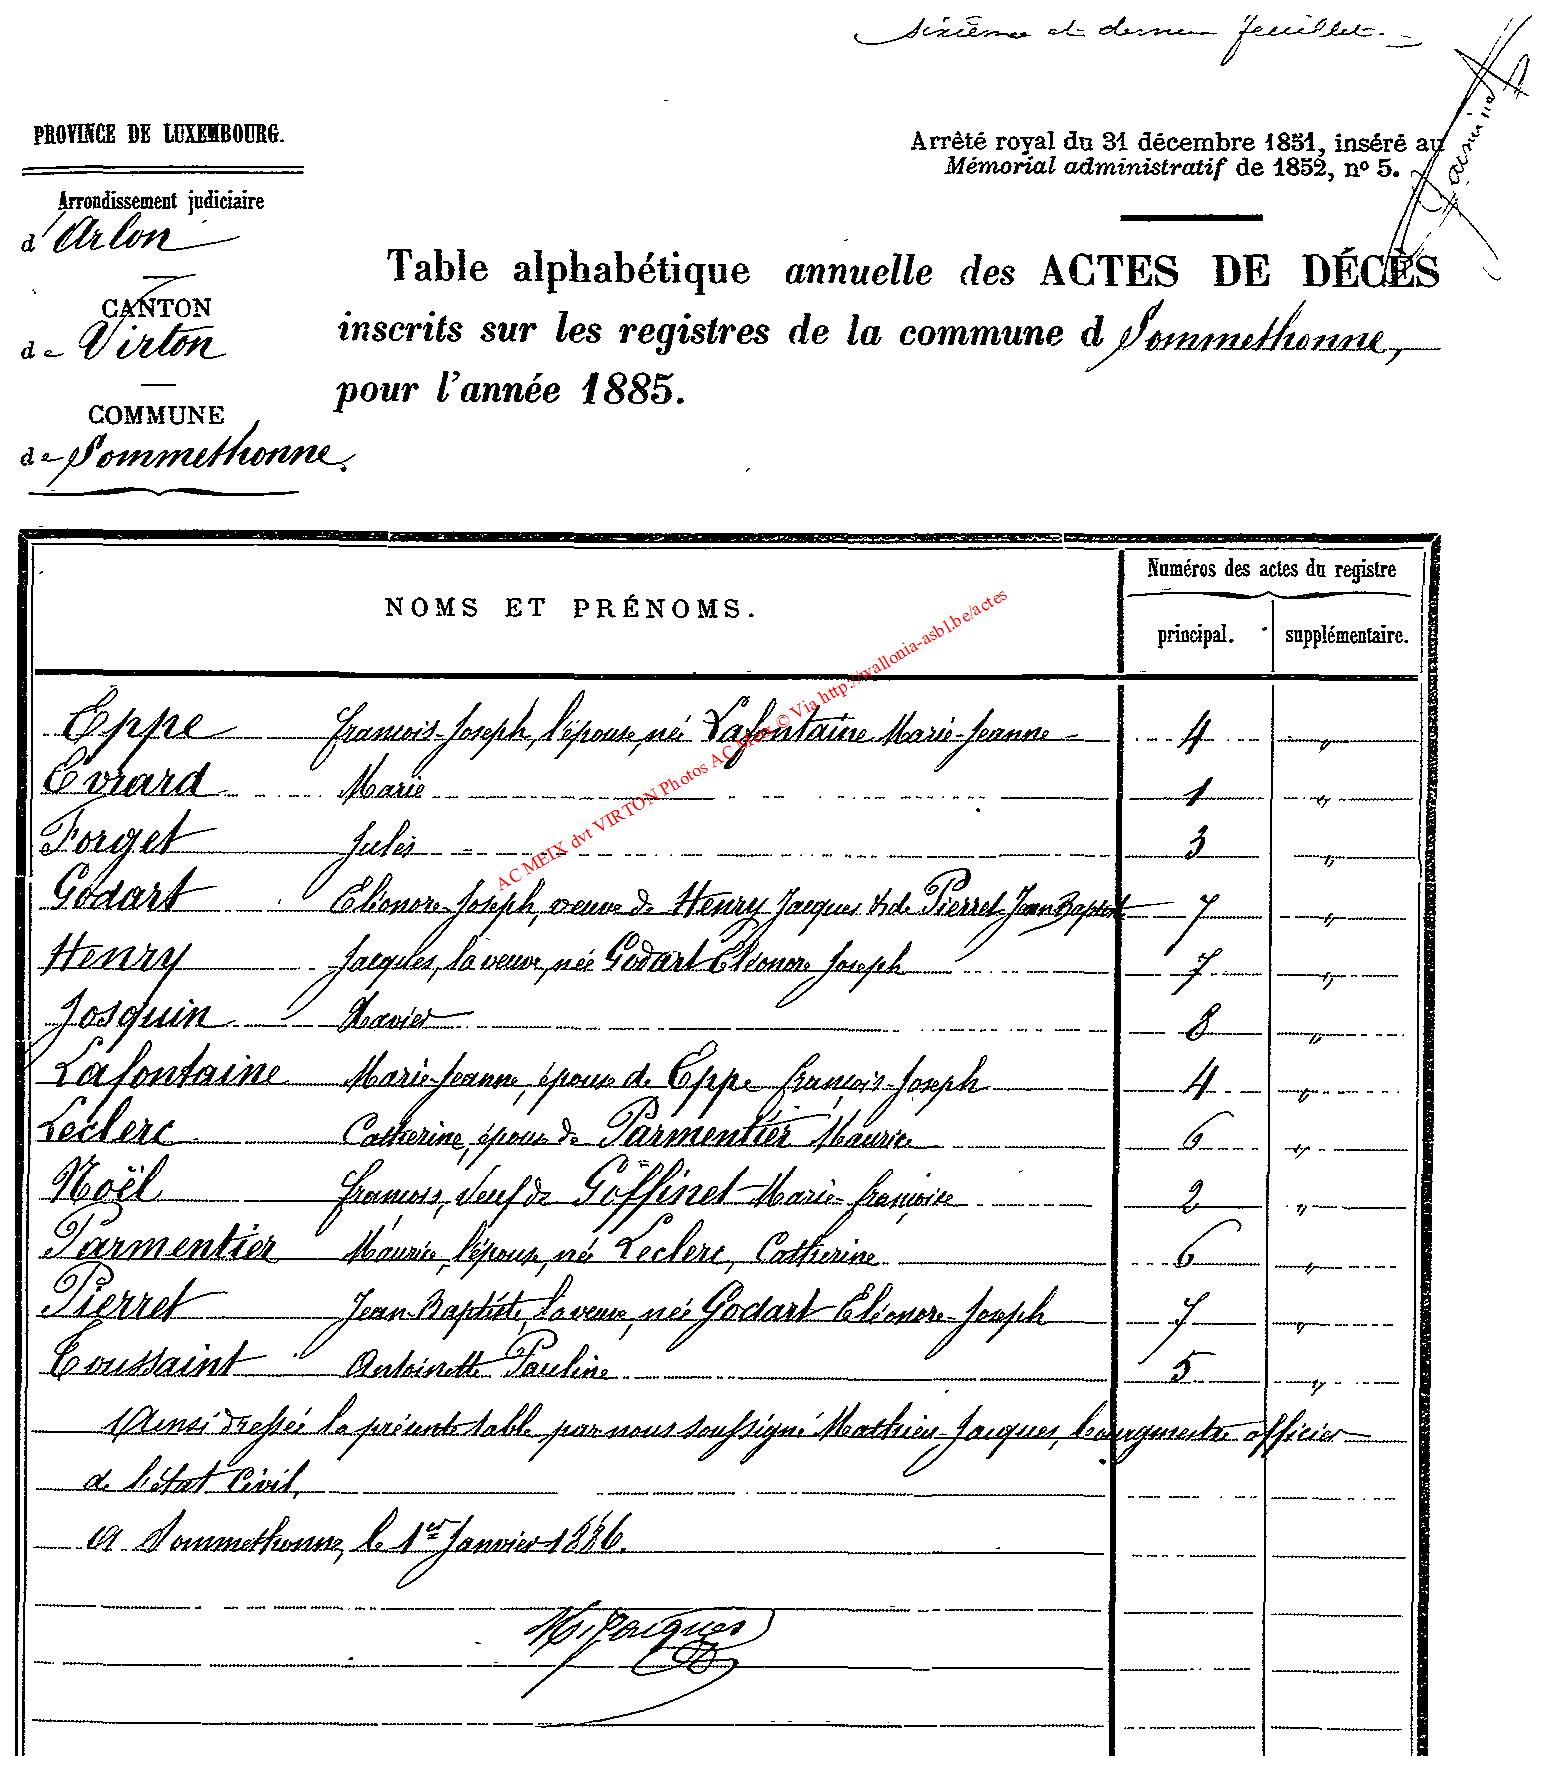 sixième et dernier feuillet.
PROVINCE DE LUXEMBOURG.
Arrêté royal du 31 décembre 1851, inséré au
Mémorial administratif de 1852, nº 5.
Arrondissement judiciaire
d'Arlon
CANTON
de Virton
COMMUNE
de Sommethonne.
Table alphabétique annuelle des ACTES DE DÉCÈS
inscrits sur les registres de la commune d Sommethonne,
pour l'année 1885.
NOMS ET PRÉNOMS.
Numéros des actes du registre
principal. supplémentaire.
AC MEIX dvt VIRTON Photos AC Meix © Via http://wallonia-asbl.be/actes
Eppe François-Joseph, l'épouse, née Lafontaine Marie-Jeanne 4 "
Evrard Marie 1 "
Forget Jules 3 "
Godart Eléonore-Joseph, veuve de Henry Jacques & de Pierret Jean Baptiste 7 "
Henry Jacques, la veuve, née Godart Eléonore Joseph 7 "
Josquin Xavier 8 "
Lafontaine Marie-Jeanne, épouse de Eppe François-Joseph 4 "
Leclerc Catherine, épouse de Parmentier Maurice 6 "
Noël François, veuf de Goffinet Marie-Françoise 2 "
Parmentier Maurice, l'épouse, née Leclerc, Catherine 6 "
Pierret Jean-Baptiste, la veuve, née Godart Eléonore-Joseph 7 "
Toussaint Antoinette Pauline 5 "
Ainsi dressée la présente table par nous soussigné Mathieu-Jacques, bourgmestre officier
de l'état civil,
A Sommethonne, le 1er Janvier 1886.
M. Jacques